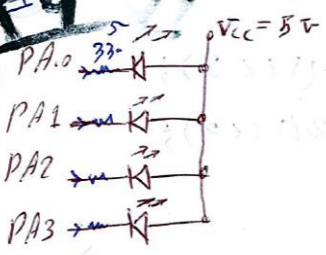 5
Vcc = 5 v
PA.0
33-
PA1
PA2
PA3